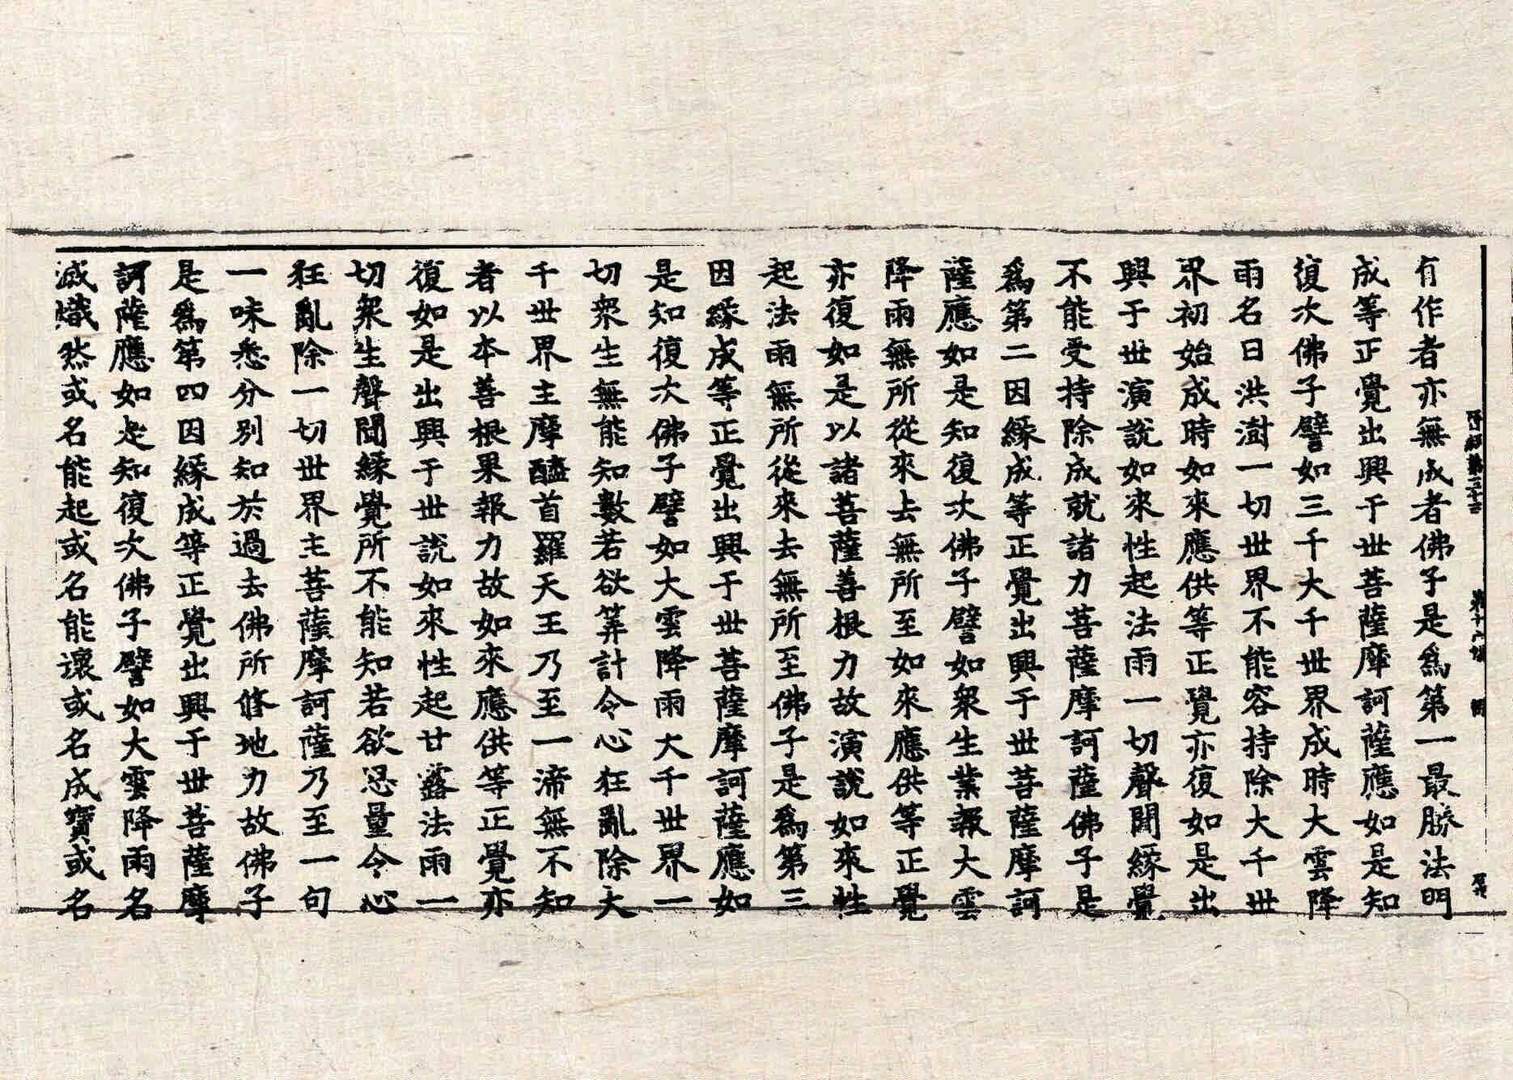 有作者亦無成者佛子是爲第一最勝法門
成等正覺出興于世菩薩摩訶薩應如是知
復次佛子譬如三千大千世界成時大雲降
雨名曰洪澍一切世界不能容持除大千世
界初始成時如來應供等正覺亦復如是出
興于世演說如來性起法雨一切聲聞緣覺
不能受持除成就諸力菩薩摩訶薩佛子是
爲第二因緣成等正覺出興于世菩薩摩訶
薩應如是知復次佛子譬如衆生業報大雲
降雨無所從來去無所至如來應供等正覺
亦復如是以諸菩薩善根力故演說如來性
起法雨無所從來去無所至佛子是爲第三
因緣成等正覺出興于世菩薩摩訶薩應如
是知復次佛子譬如大雲降雨大千世界一
切衆生無能知數若欲筭計令心狂亂除大
千世界主摩醯首羅天王乃至一渧無不知
者以本善根果報力故如來應供等正覺亦
復如是出興于世說如來性起甘露法雨一
切衆生聲聞緣覺所不能知若欲思量令心
狂亂除一切世界主菩薩摩訶薩乃至一句
一味悉分別知於過去佛所修地力故佛子
是爲第四因緣成等正覺出興于世菩薩摩
訶薩應如是知復次佛子譬如大雲降雨名
滅熾然或名能起或名能壞或名成寶或名